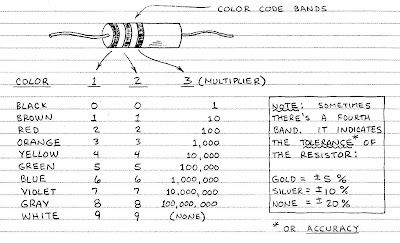 COLOR CODE BANDS
COLOR 1 2 3 (MULTIPLIER)
BLACK 0 0 1
BROWN 1 1 10
RED 2 2 100
ORANGE 3 3 1,000
YELLOW 4 4 10,000
GREEN 5 5 100,000
BLUE 6 6 1,000,000
VIOLET 7 7 10,000,000
GRAY 8 8 100,000,000
WHITE 9 9 (NONE)
NOTE: SOMETIMES
THERE'S A FOURTH
BAND. IT INDICATES
THE TOLERANCE* OF
THE RESISTOR:
GOLD = ±5%
SILVER = ±10%
NONE = ±20%
* OR ACCURACY